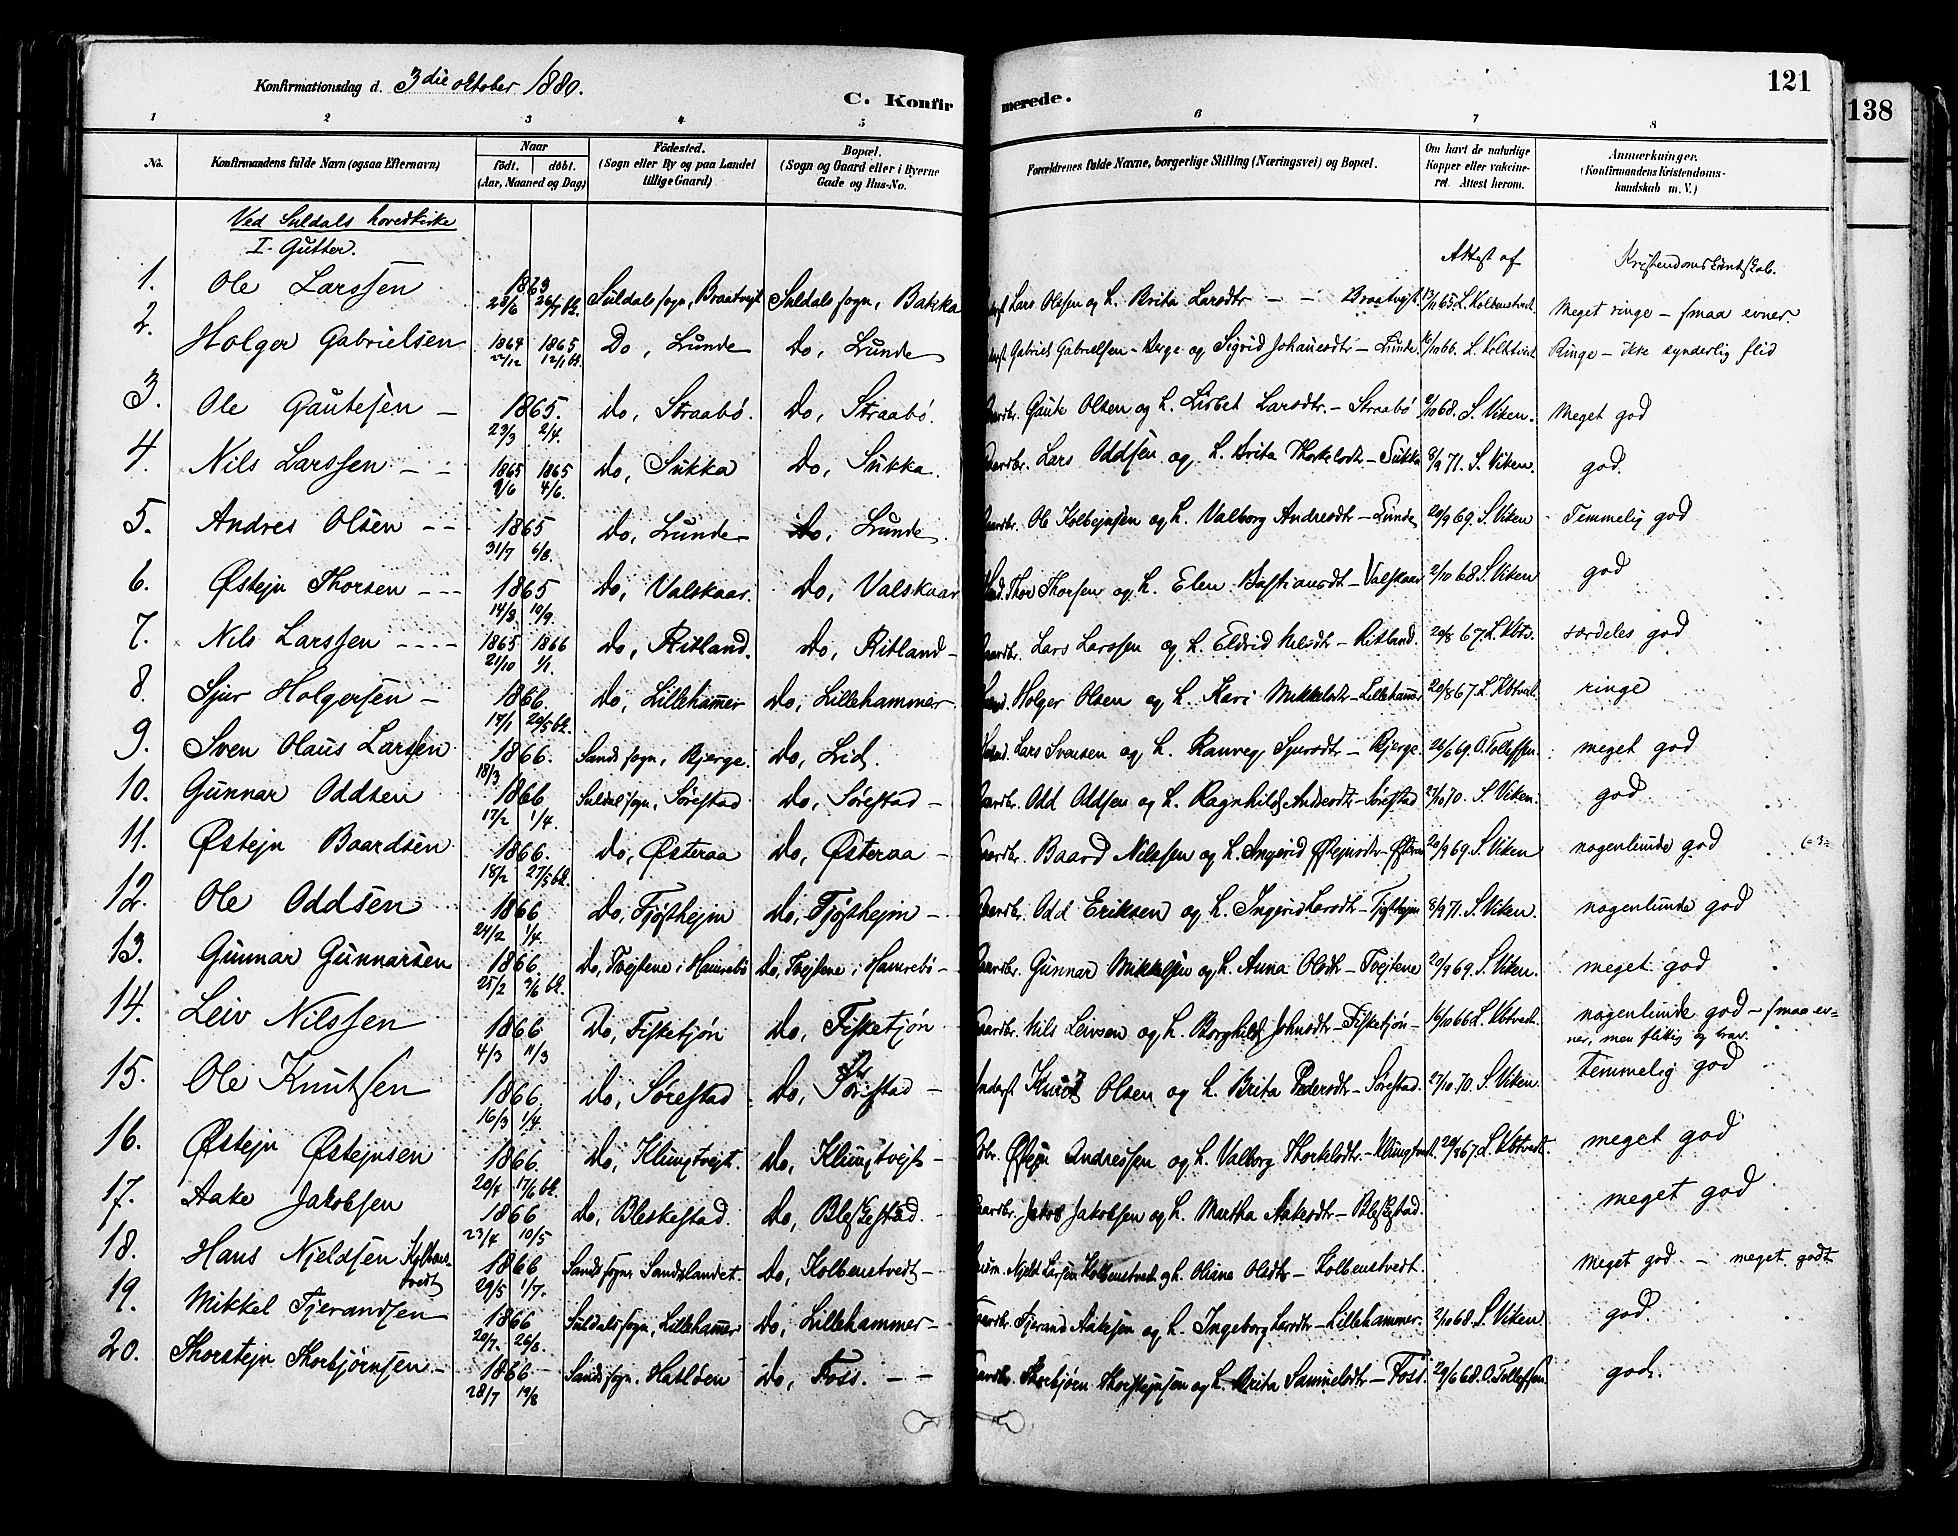 121
138
Konfirmationsdag d. 3die oktober 1880.
C. Konfirmerede.
1 2 3 4 5 6 7 8
No. Konfirmandens fulde Navn (ogsaa Efternavn) Naar født. døbt. (Aar, Maaned og Dag) Fødested. (Sogn eller By og paa Landet tillige Gaard) Bopæl. (Sogn og Gaard eller i Byerne Gade og Hus-No. Forældrenes fulde Navne, borgerlige Stilling (Næringsvei) og Bopæl. Om havt de naturlige Kopper eller vakcineret. Attest herom. Anmærkninger. (Konfirmandens Kristendomskundskab m. V.)
Ved Suldals hovedkirke
I. Gutter. Attest af Kristendomskundskab.
1. Ole Larssen 1863 28/6 26/7 bk. Suldals sogn, Braatvejt Suldals sogn, Bakka Lars Olssen og h. Brita Larsdtr - - Braatvejt. 13/11 65. L. Kolbenstvedt. Meget ringe - smaa evner.
2. Holger Gabrielsen 1864 27/12 1865 12/1 bk. Do, Lunde Do, Lunde Gabriel Gabrielsen - Berge og Sigrid Johanesdtr - Lunde. 16/10 66. L. Kolbtvedt Ringe - ikke synderlig flid
3. Ole Gautesen - 1865. 23/3 2/4. do, Straabø. Do, Straabø. Gaardbr. Gaute Olsen og h. Lisbet Larsdtr. - Straabø 2/10 68. S. Viken. Meget god
4. Nils Larssen - - 1865 9/6 1865 4/6. do, Sukka Do, Sukka. Gaardbr. Lars Oddsen og h. Brita Thorkelsdtr - Sukka 8/9 71. S. Viken. god.
5. Andres Olsen - - 1865 31/7 6/8. Do, Lunde - Do, Lunde. Gaardbr. Ole Kolbejnsen og h. Valborg Andresdtr - Lunde 20/9 69. S. Viken Temmelig god
6. Østejn Thorsen - - - 1865 14/8. 10/9. Do, Valskaar. Do, Valskaar Thor Thorsen og h. Elen Bastiansdt - Valskaar 2/10 68 S. Viken god
7. Nils Larssen - - - - 1865 21/10 1866 1/1. do, Ritland. Do, Ritland - Gaardbr. Lars Larssen og h. Eldrid Nilsdtr - Ritland. 20/8 67. L. Kbtv. særdeles god
8. Sjur Holgersen - 1866. 17/1 20/5 bk. do, Lillehammer do, Lillehammer Holger Olsen og h. Kari Mikkelsdtr - Lillehammer 20/8 67. L. Kbtvedt. ringe
9. Sven Olaus Larssen 1866. 18/3 Sands sogn, Bjerge. do, Lid. Lars Svensen og h. Ranveg Sjursdtr - Bjerge. 26/6 69. O. Tollefsen. meget god
10. Gunnar Oddsen 1866 17/2 1/4. Suldal sogn, Sørestad do, Sørestad - Gaardbr. Odd Oddsen og h. Ragnhild Andersdtr - Sørestad 27/10 70. S. Viken. god
11. Østejn Baardsen 1866. 18/2 27/5 bk. do, Østeraa Do, Østeraa - Gaardbr. Baard Nilssen og h. Ingerid Østejnsdtr - Østeraa 20/9 69. S. Viken nogenlunde god
12. Ole Oddsen 1866 24/2 1/4. Do, Fjøsthejm do, Fjøsthejm - Gaardbr. Odd Eriksen og h. Ingerid Larsdtr - Fjøsthejm 8/9 71. S. Viken. nogenlunde god
13. Gunnar Gunnarsen 1866. 25/2 3/6 bk. do, Tvejtene i Hamrebø do, Tvejtene i Hamrebø - Gaardbr. Gunnar Mikkelsen og h. Anna Olsdtr - Tvejtene 20/9 69. S. Viken. meget god
14. Leiv Nilssen 1866 4/3 11/3 Do, Fisketjøn do, Fisketjøn Gaardbr. Nils Leivsen og h. Borghild Johnsdtr - Fisketjøn - 16/10 66 L. Kbtvedt. nogenlunde god - smaa ev-
ner, men flittig og brav.
15. Ole Knutsen 1866. 16/3 1/4. Do, Sørestad do, Sørestad - Inderst Knut Olsen og h. Brita Pedersdtr - Sørestad. 27/10 70 S. Viken. Temmelig god
16. Østejn Østejnsen 1866. 20/4 17/6 bk. do, Klungtvejt. do, Klungtvejt - Østejn Andressen og h. Valborg Thorkelsdtr - Klungtvedt. 67. L. Kbtvedt. meget god
17. Aake Jakobsen 1866 23/4 10/5 do, Bleskestad. do, Bleskestad. Gaardbr. Jakob Jakobsen og h. Martha Aakesdtr - Bleskestad. meget god
18. Hans Njeldsen Kolbens- 1866 29/5 1/7. Sands sogn Sandslandet. Do, Kolbenstvedt - Njeld Larsen Kolbenstvedt og h. Oliane Olsdtr - Kolbenstvedt. Meget god. - meget godt
tvedt
19. Mikkel Tjerandsen 1866 20/7. 26/8. Suldals sogn, Lillehammer do, Lillehammer - Gaardbr. Tjerand Aakesen og h. Ingeborg Larsdtr - Lillehammer. 2/10 68. S. Viken. god.
20. Thorstejn Thorbjørnsen - 1866 28/7 19/8 Sands sogn. Hatløen do, Foss. - - Gaardbr. Thorbjørn Thorstejnsen og h. Brita Samuelsdtr - Foss. 29/6 68. O. Tollefsen. god.